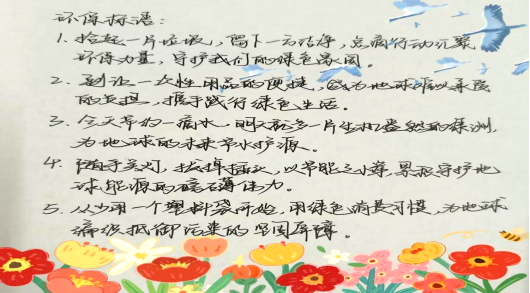 环保标语:
1. 捡起一片垃圾,留下一方洁净,点滴行动汇聚
环保力量,守护我们的绿色家园。
2. 别让一次性用品的便捷,成为地球难以承受
的负担,携手践行绿色生活。
3. 今天节约一滴水,明天就多一片生机盎然的绿洲,
为地球的未来节水护源。
4. 随手关灯,拔掉插头,以节能之小举,累积守护地
球能源的磅礴伟力。
5. 从少用一个塑料袋开始,用绿色消费习惯,为地球
筑抵御污染的坚固屏障。